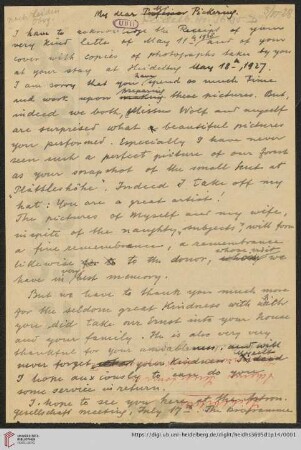 My dear Professor Pickering,
I have to acknowledge the Receipt of yours
very kind letter of May 19th 1928 and of your
cover with copies of photographs take by you
at your stay at Heidelberg May 18th, 1927.
I am sorry that you have spend so much time
and work upon preparing these pictures. But,
indeed we both, Missis Wolf and myself
are surprised what a beautiful pictures
you performed. Especially I have never
seen such a perfect picture of our forest
as your snapshot of the small at
Indeed I take off my
hat: You are a great artist!
The pictures of myself and my wife,
in spite of the naughty subjects, will form
a fine remembrance, a remembrance
likewise to the donor, we
have in best memory.
But we have to thank you much more
for the seldom great kindness with which
you did take our Ernst into your house
and your family. He is also very very
thankful for your and will
never forget your kindness.
I hope anxiously to can do you
some service in return.
I hope to see you here at the Astron.
Gesellschaft meeting, July 17th. The
https://digi.ub.uni-heidelberg.de/diglit/heidhs3695d1p14/0001